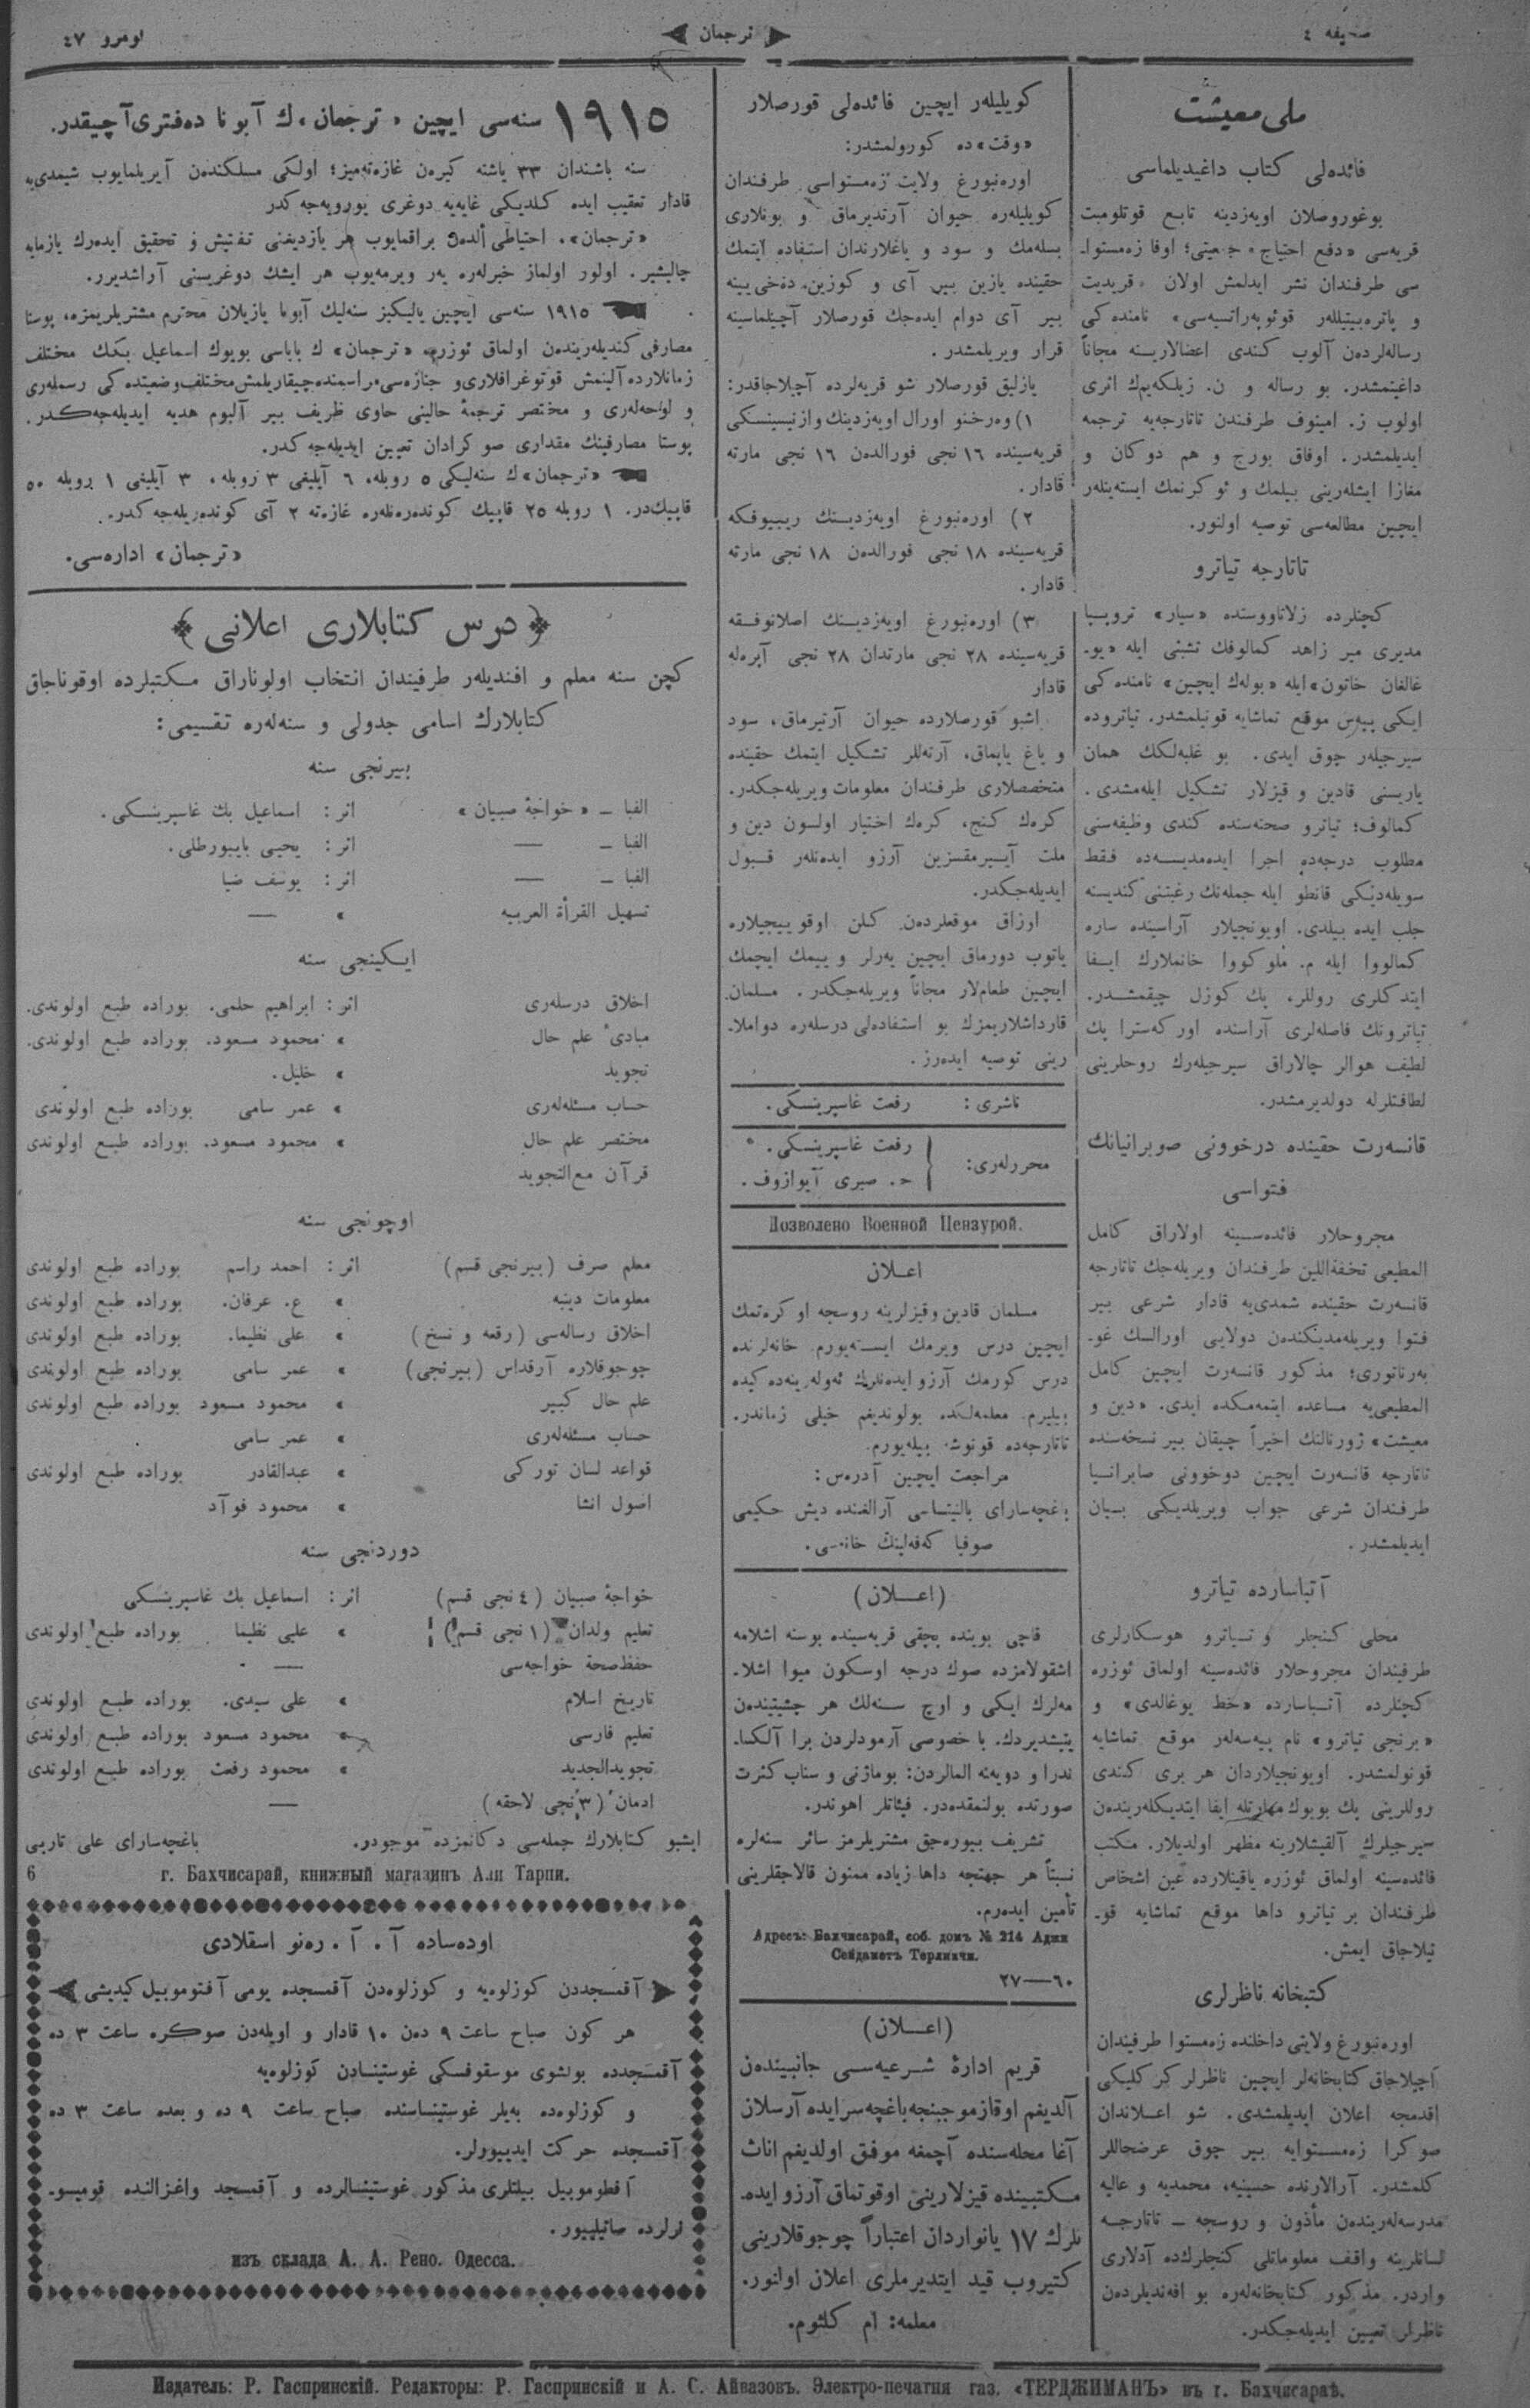 صحیفه ٤
ترجمان
نومرو ٤٧
ملی معیشت
فائده‌لی کتاب داغیدیلماسی
بوغوروصلان اویه‌زدینه تابع قوتلومبت
قریه‌سی «دفع احتیاج» جمعیتی؛ اوفا زه‌مستوا-
سی طرفندان نشر ایدلمش اولان «قریدیت
و پاتره‌بیتیللەر قوئوپه‌راتسیه‌سی» نامنده‌کی
رساله‌لردەن آلوب کندی اعضالارینه مجاناً
داغیتمشدر. بو رساله و ن. زیلکه‌یم‌ك اثری
اولوب ز. امینوف طرفندن تاتارجه‌یه ترجمه
ایدیلمشدر. اوفاق بورج و هم دوکان و
مغازا ایشلەرینی بیلمك و ئوکرنمك ایستەینلەر
ایچین مطالعه‌سی توصیه اولنور.
تاتارجه تیاترو
کچنلرده زلاتاووستده «سیار» تروپیا
مدیری میر زاهد کمالوفك تشبثی ایله «یو-
غالغان خاتون» ایله «بولەك ایچین» نامنده‌کی
ایکی پیەس موقع تماشایه قونیلمشدر. تیاتروده
سیرجیلەر چوق ایدی. بو غلبەلکك همان
یاریسنی قادین و قیزلار تشکیل ایله‌مشدی.
کمالوف؛ تیاترو صحنه‌سنده کندی وظیفه‌سنی
مطلوب درجه‌ده اجرا ایدەمدیسه‌ده فقط
سویله‌دیکی قانطو ایله جمله‌نك رغبتنی کندیسنه
جلب ایده بیلدی. اویونجیلار آراسینده ساره
کمالووا ایله م. ملوکووا خانملارك ایفا
ایتدکلری روللر، پك کوزل چیقمشدر.
تیاترونك فاصله‌لری آراسنده اورکه‌سترا پك
لطیف هوالر چالاراق سیرجیلەرك روحلرینی
لطافتلرله دولدیرمشدر.
قانسەرت حقینده درخوونی صوبرانیانك
فتواسی
مجروحلار فائده‌سینه اولاراق کامل
المطیعی تحفةاللین طرفندان ویریله‌جك تاتارجه
قانسەرت حقینده شمدی‌یه قادار شرعی بیر
فتوا ویریله‌مدیکندەن دولایی اورالسك غو-
بەرناتوری؛ مذکور قانسەرت ایچین کامل
المطیعی‌یه مساعده ایتمه‌مکده ایدی. «دین و
معیشت» ژورنالنك اخیراً چیقان بیر نسخه‌سنده
تاتارجه قانسەرت ایچین دوخوونی صابرانیا
طرفندان شرعی جواب ویریلدیکی بیان
ایدیلمشدر.
آتباسارده تیاترو
محلی کنجلر و تیاترو هوسکارلری
طرفیندان مجروحلار فائده‌سینه اولماق ئوزره
کچنلرده آتباسارده «خط یوغالدی» و
«برنجی تیاترو» نام پیه‌سه‌لەر موقع تماشایه
قونولمشدر. اویونجیلاردان هر بری کندی
روللرینی پك بویوك مهارتله ایفا ایتدیکلەریندەن
سیرجیلرك آلقیشلارینه مظهر اولدیلار. مکتب
فائده‌سینه اولماق ئوزره یاقینلارده عین اشخاص
طرفندان بر تیاترو داها موقع تماشایه قو-
ئیلاجاق ایمش.
کتبخانه ناظرلری
اوره‌نبورغ ولایتی داخلنده زەمستوا طرفیندان
آچیلاجاق کتابخانه‌لر ایچین ناظرلر کرکلیکی
اقدمجه اعلان ایدیلمشدی. شو اعلاندان
صوکرا زەمستوایه بیر چوق عرضحاللر
کلمشدر. آرالارنده حسینیه، محمدیه و عالیه
مدرسه‌لەریندەن مأذون و روسجه ــ تاتارجه
لسانلرینه واقف معلوماتلی کنجلرك‌ده آدلاری
واردر. مذکور کتابخانه‌لەره بو افندیلردەن
ناظرلر تعیین ایدیله‌جکدر.
کویلیلەر ایچین فائده‌لی قورصلار
«وقت» ده کورولمشدر:
اوره‌نبورغ ولایت زەمستواسی طرفندان
کویلیلەره حیوان آرتدیرماق و بونلاری
بسله‌مك و سود و یاغلارندان استفاده ایتمك
حقینده یازین بیر آی و کوزین‌ده‌خی یینه
بیر آی دوام ایده‌جك قورصلار آچیلماسینه
قرار ویریلمشدر.
یازلیق قورصلار شو قریه‌لرده آچیلاجاقدر:
١) وەرخنو اورال اویه‌زدینك وازنیسینسکی
قریه‌سینده ١٦ نجی فورالدەن ١٦ نجی مارته
قادار.
٢) اوره‌نبورغ اویه‌زدینك ریبیوفکه
قریه‌سینده ١٨ نجی فورالدەن ١٨ نجی مارته
قادار.
٣) اوره‌نبورغ اویه‌زدینك اصلانوفقه
قریه‌سینده ٢٨ نجی مارتدان ٢٨ نجی آپره‌له
قادار
اشبو قورصلارده حیوان آرتیرماق، سود
و یاغ یاپماق، آرته‌للر تشکیل ایتمك حقینده
متخصصلاری طرفندان معلومات ویریله‌جکدر.
کرەك کنج، کرەك اختیار اولسون دین و
ملت آییرمقسزین آرزو ایده‌نلەر قبول
ایدیله‌جکدر.
اوزاق موقعلردەن کلن اوقوییجیلاره
یاتوب دورماق ایچین یەرلر و ییمك ایچمك
ایچین طعاملار مجاناً ویریله‌جکدر. مسلمان
قارداشلاریمزك بو استفاده‌لی درسلەره دواملا-
رینی توصیه ایده‌رز.
ناشری: رفعت غاسپرینسکی.
محررلەری: رفعت غاسپرینسکی.
ح. صبری آیوازوف.
Дозволено Военной Цензурой.
اعلان
مسلمان قادین و قیزلرینه روسجه اوکره‌تمك
ایچین درس ویرمك ایستەیورم. خانه‌لرنده
درس کورمك آرزو ایده‌نلرك ئەولەرینه‌ده کیده
بیلیرم. معلمه‌لکده بولوندیغم خیلی زماندر.
تاتارجه‌ده قونوشه بیله‌یورم.
مراجعت ایچین آدرەس:
باغچه‌سارای بالنیتساسی آرالغنده دیش حکیمی
صوفیا که‌فه‌لینك خانه‌سی.
(اعلان)
قاچی بوینده بچقی قریه‌سینده بوسنه اشلامه
اشقولامزده صوك درجه اوسکون میوا اشلا-
مه‌لرك ایکی و اوچ سنه‌لك هر چشیتیندەن
یتیشدیردك. با خصوصی آرمودلردن برا آلکسا-
ندرا و دویه‌نه المالردن: بوماژنی و سناب کثرت
صورتده بولنمقده‌در. فیئاتلر اهوندر.
تشریف بیوره‌جق مشتریلرمز سائر سنه‌لره
نسبتاً هر جهتجه داها زیاده ممنون قالاجقلرینی
تأمین ایده‌رم.
Адресъ: Бахчисарай, соб. домъ № 214 Аджи
Сейдаметъ Терликчи.
٦٠—٢٧
(اعلان)
قریم اداره‌ٔ شرعیه‌سی جانبیندەن
آلدیغم اوقازموجبنجه باغچه‌سرایده آرسلان
آغا محله‌سنده آچمغه موفق اولدیغم اناث
مکتبینده قیزلارینی اوقوتماق آرزو ایده-
نلرك ١٧ یانواردان اعتباراً چوجوقلارینی
کتیروب قید ایتدیرملری اعلان اولنور.
معلمه: ام کلثوم.
١٩١٥ سنه‌سی ایچین «ترجمان» ك آبونا ده‌فتری آچیقدر.
سنه باشندان ٣٣ یاشنه کیرەن غازەته‌میز؛ اولکی مسلکندەن آیریلمایوب شیمدی‌یه
قادار تعقیب ایده کلدیکی غایه‌یه دوغری یورویه‌جه‌کدر
«ترجمان»، احتیاطی ألدەن براقمایوب هر یازدیغنی تفتیش و تحقیق ایدەرك یازمایه
چالیشیر. اولور اولماز خبرله‌ره یەر ویرمەیوب هر ایشك دوغریسنی آراشدیرر.
١٩١٥ سنه‌سی ایچین یالیکیز سنه‌لیك آبونا یازیلان محترم مشتریلریمزه، پوستا
مصارفی کندیلەریندەن اولماق ئوزره «ترجمان» ك باباسی بویوك اسماعیل بكك مختلف
زمانلارده آلینمش فوتوغرافلاری و جنازه‌سی مراسمنده چیقاریلمش مختلف وضعیتده‌کی رسمله‌ری
و لوحه‌له‌ری و مختصر ترجمهٔ حالینی حاوی ظریف بیر آلبوم هدیه ایدیله‌جه‌کدر.
پوستا مصارفینك مقداری صوکرادان تعیین ایدیله‌جه‌کدر.
«ترجمان» ك سنه‌لیکی ٥ روبله، ٦ آیلیغی ٣ روبله، ٣ آیلیغی ١ روبله ٥٠
قاپیك‌در. ١ روبله ٢٥ قاپیك کونده‌ره‌نلەره غازەته ٢ آی کونده‌ریله‌جه‌کدر.
«ترجمان» اداره‌سی.
درس کتابلاری اعلانی
کچن سنه معلم و افندیلەر طرفیندان انتخاب اولوناراق مکتبلرده اوقوناجاق
کتابلارك اسامی جدولی و سنه‌لەره تقسیمی:
بیرنجی سنه
الفبا ــ «خواجهٔ صبیان» اثر: اسماعیل بك غاسپرینسکی.
الفبا ــ — اثر: یحیی بایبورطلی.
الفبا ــ — اثر: یوسف ضیا
تسهیل القرأة العربیه » —
ایکینجی سنه
اخلاق درسلەری اثر: ابراهیم حلمی. بوراده طبع اولوندی.
مبادیٔ علم حال » محمود مسعود. بوراده طبع اولوندی.
تجوید » خلیل.
حساب مسئله‌لەری » عمر سامی بوراده طبع اولوندی
مختصر علم حال » محمود مسعود. بوراده طبع اولوندی
قرآن مع‌التجوید
اوچونجی سنه
معلم صرف (بیرنجی قسم) اثر: احمد راسم بوراده طبع اولوندی
معلومات دینیه » ع. عرفان. بوراده طبع اولوندی
اخلاق رساله‌سی (رقعه و نسخ) » علی نظیما. بوراده طبع اولوندی
چوجوقلاره آرقداس (بیرنجی) » عمر سامی بوراده طبع اولوندی
علم حال کبیر » محمود مسعود بوراده طبع اولوندی
حساب مسئله‌لەری » عمر سامی
قواعد لسان تورکی » عبدالقادر بوراده طبع اولوندی
اصول انشا » محمود فوآد
دوردنجی سنه
خواجهٔ صبیان (٤ نجی قسم) اثر: اسماعیل بك غاسپرینسکی
تعلیم ولدان (١ نجی قسم) » علی نظیما بوراده طبع اولوندی
حفظ‌صحة خواجه‌سی —
تاریخ اسلام » علی سیدی. بوراده طبع اولوندی
تعلیم فارسی » محمود مسعود بوراده طبع اولوندی
تجویدالجدید » محمود رفعت بوراده طبع اولوندی
ادمان (٣ نجی لاحقه) —
ایشبو کتابلارك جمله‌سی دکانمزده موجوددر. باغچه‌سارای علی تارپی
г. Бахчисарай, книжный магазинъ Али Тарпи. 6
اوده‌ساده آ. آ. ره‌نو اسقلادی
آقمسجددن کوزلوه‌یه و کوزلوه‌دن آقمسجده یومی آفتوموبیل کیدیشی
هر کون صباح ساعت ٩ دەن ١٠ قادار و اویله‌دن صوکره ساعت ٣ ده
آقمسجدده بولشوی موسقوفسکی غوستینسادن کوزلوه‌یه
و کوزلوه‌ده به‌یلر غوستینساسنده صباح ساعت ٩ ده و بعده ساعت ٣ ده
آقمسجده حرکت ایدییورلر.
آفطوموبیل بیلتلری مذکور غوستینسالرده و آقمسجد واغزالنده قومیسو-
نرلرده صاتیلییور.
изъ склада А. А. Рено. Одесса.
Издатель: Р. Гаспринскій. Редакторы: Р. Гаспринскій и А. С. Айвазовъ. Электро-печатня газ. «ТЕРДЖИМАНЪ» въ г. Бахчисараѣ.